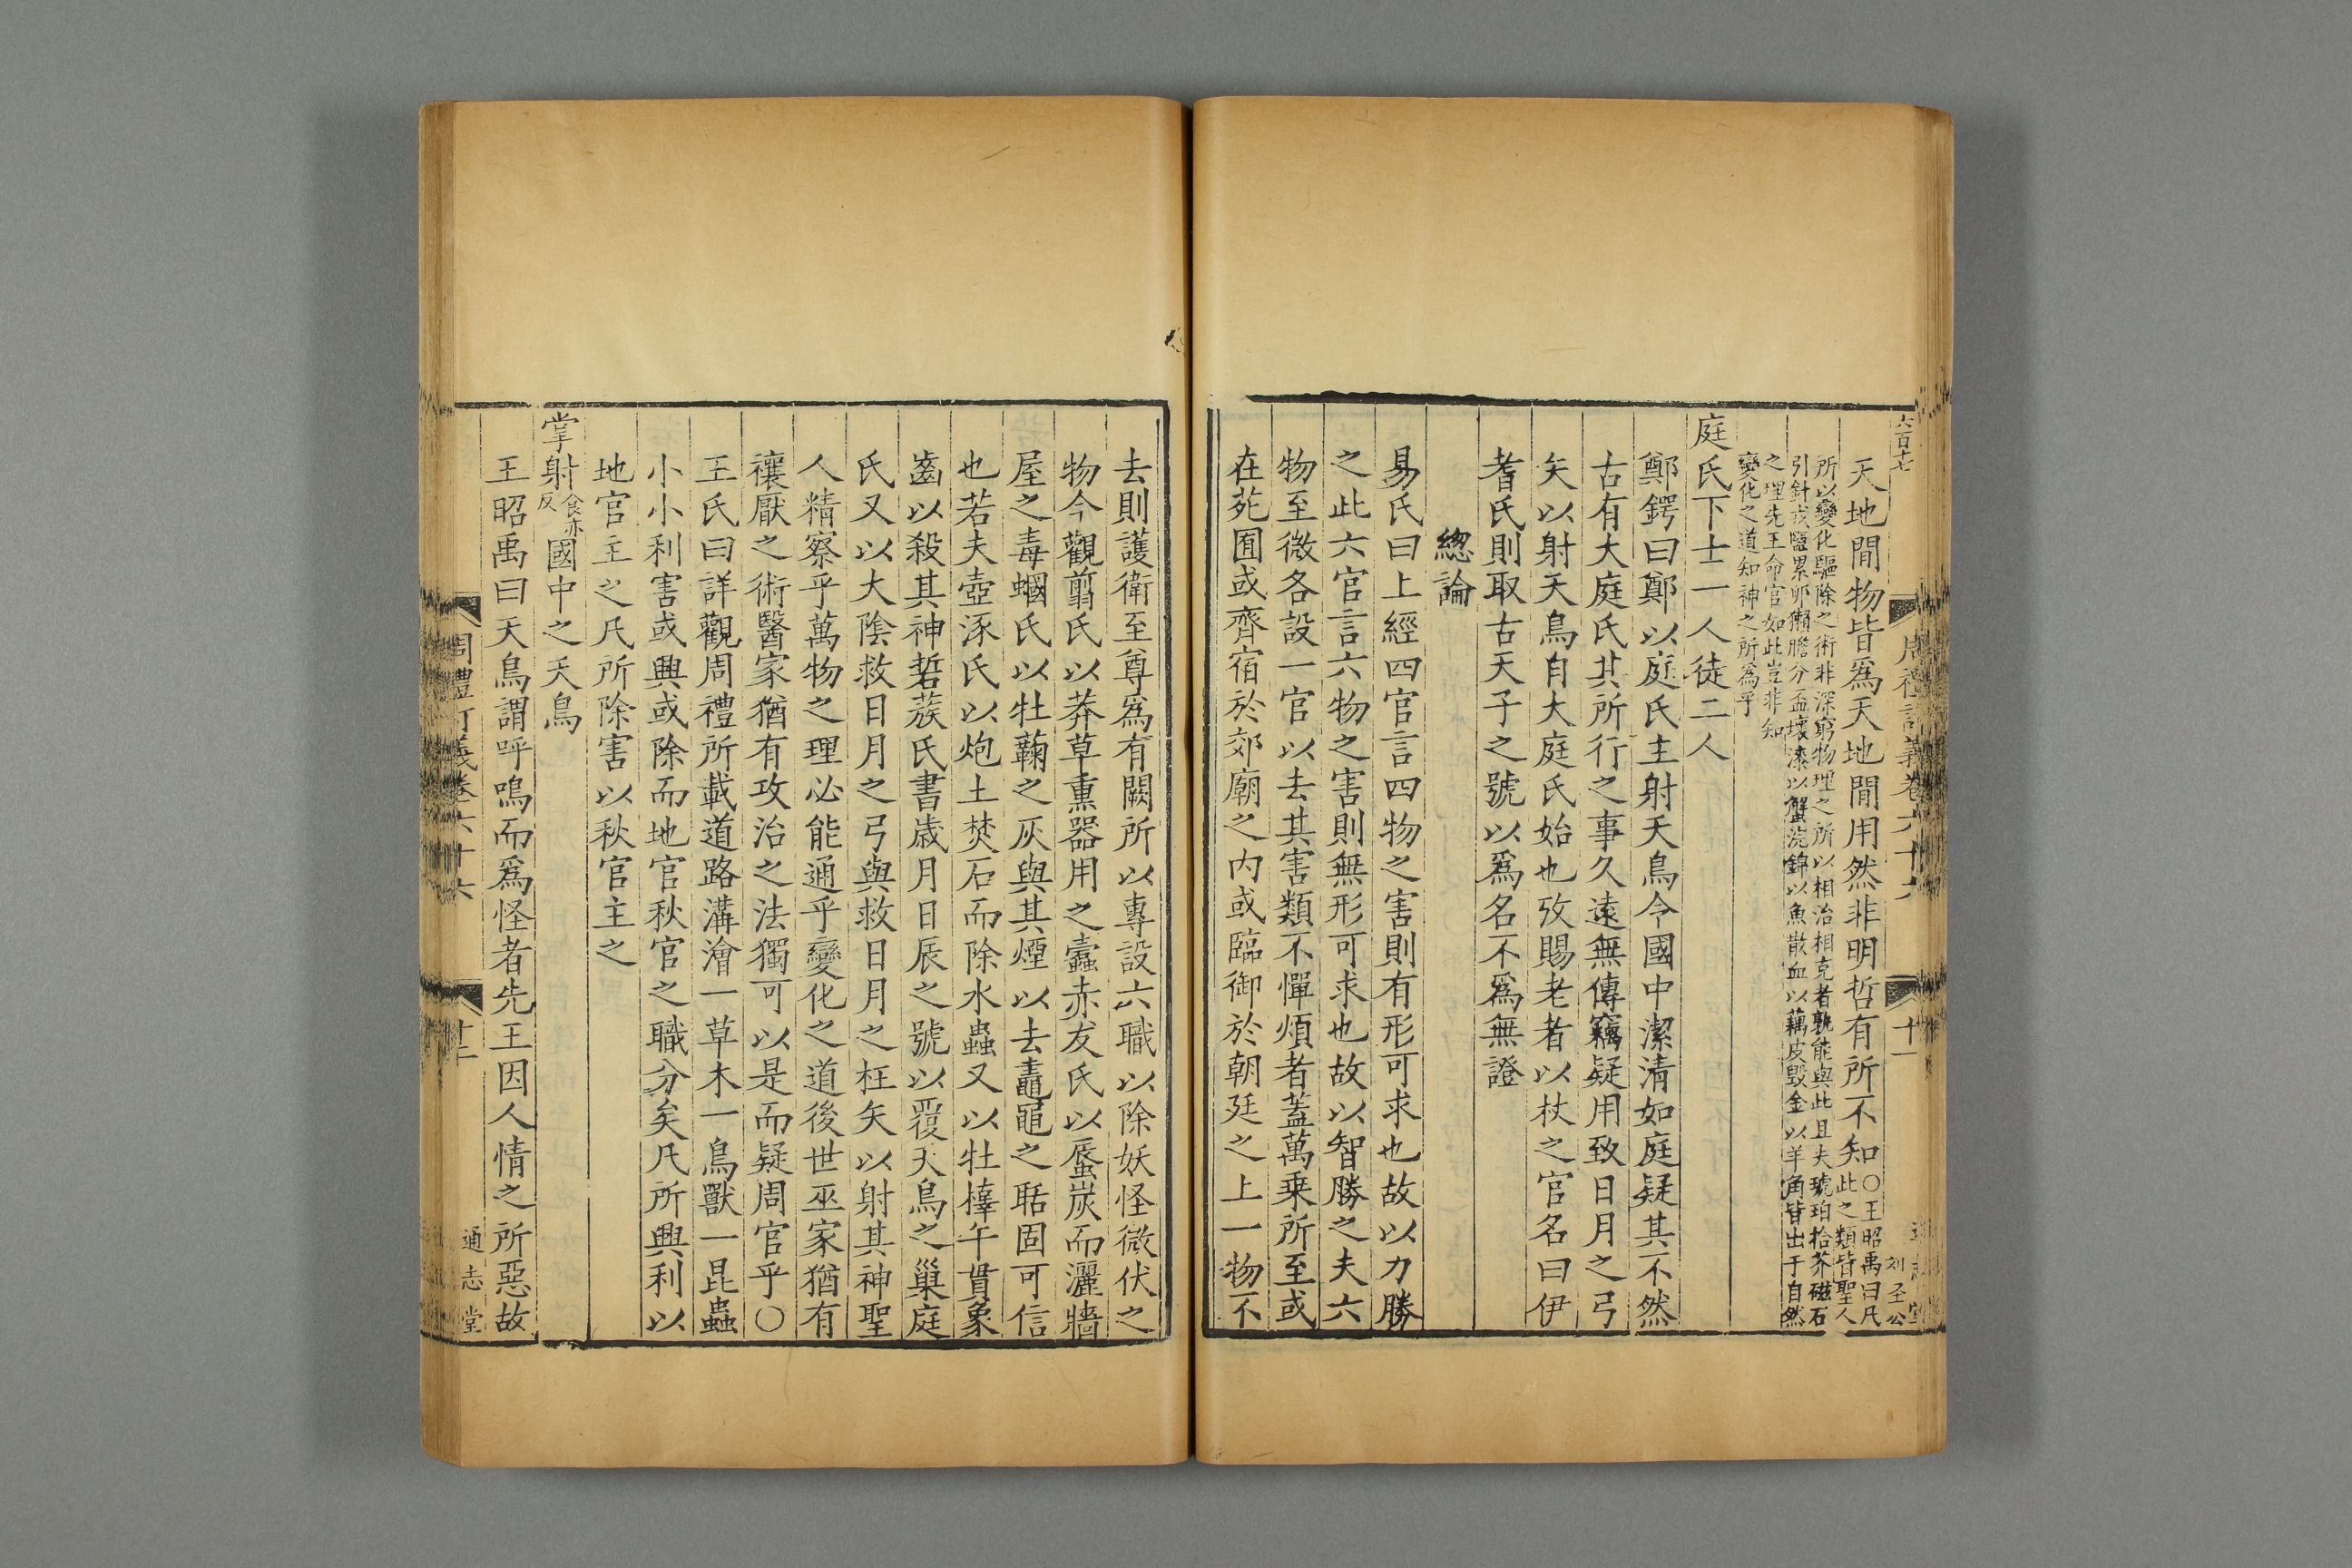 六百十七
周禮訂義卷六十六
十一
刘圣公
天地閒物皆爲天地閒用然非明哲有所不知○王昭禹曰凡
此之類皆聖人
所以變化驅除之術非深窮物理之所以相治相克者孰能與此且夫琥珀拾芥磁石
引針戎鹽累卵獺膽分盃壞漆以蟹浣錦以魚散血以藕皮毁金以羊角皆出于自然
之理先王命官如此豈非知
變化之道知神之所爲乎
庭氏下士一人徒二人
鄭鍔曰鄭以庭氏主射夭鳥令國中潔清如庭疑其不然
古有大庭氏其所行之事久遠無傳竊疑用致日月之弓
矢以射夭鳥自大庭氏始也攷賜老者以杖之官名曰伊
耆氏則取古天子之號以爲名不爲無證
緫論
易氏曰上經四官言四物之害則有形可求也故以力勝
之此六官言六物之害則無形可求也故以智勝之夫六
物至微各設一官以去其害類不憚煩者蓋萬乗所至或
在苑囿或齊宿於郊廟之内或臨御於朝廷之上一物不
去則護衛至尊爲有闕所以專設六職以除妖怪微伏之
物今觀翦氏以莽草熏器用之蠹赤犮氏以蜃炭而灑牆
屋之毒蟈氏以牡蘜之灰與其煙以去鼃黽之聒固可信
也若夫壺涿氏以炮土焚石而除水蟲又以牡橭午貫象
齒以殺其神硩蔟氏書歲月日辰之號以覆夭鳥之巢庭
氏又以大陰救日月之弓與救日月之枉矢以射其神聖
人精察乎萬物之理必能通乎變化之道後世巫家猶有
禳厭之術醫家猶有攻治之法獨可以是而疑周官乎○
王氏曰詳觀周禮所載道路溝澮一草木一鳥獸一昆蟲
小小利害或興或除而地官秋官之職分矣凡所興利以
地官主之凡所除害以秋官主之
掌射食亦反國中之夭鳥
王昭禹曰夭鳥謂呼鳴而爲怪者先王因人情之所惡故
周禮訂義卷六十六
十二
通志堂